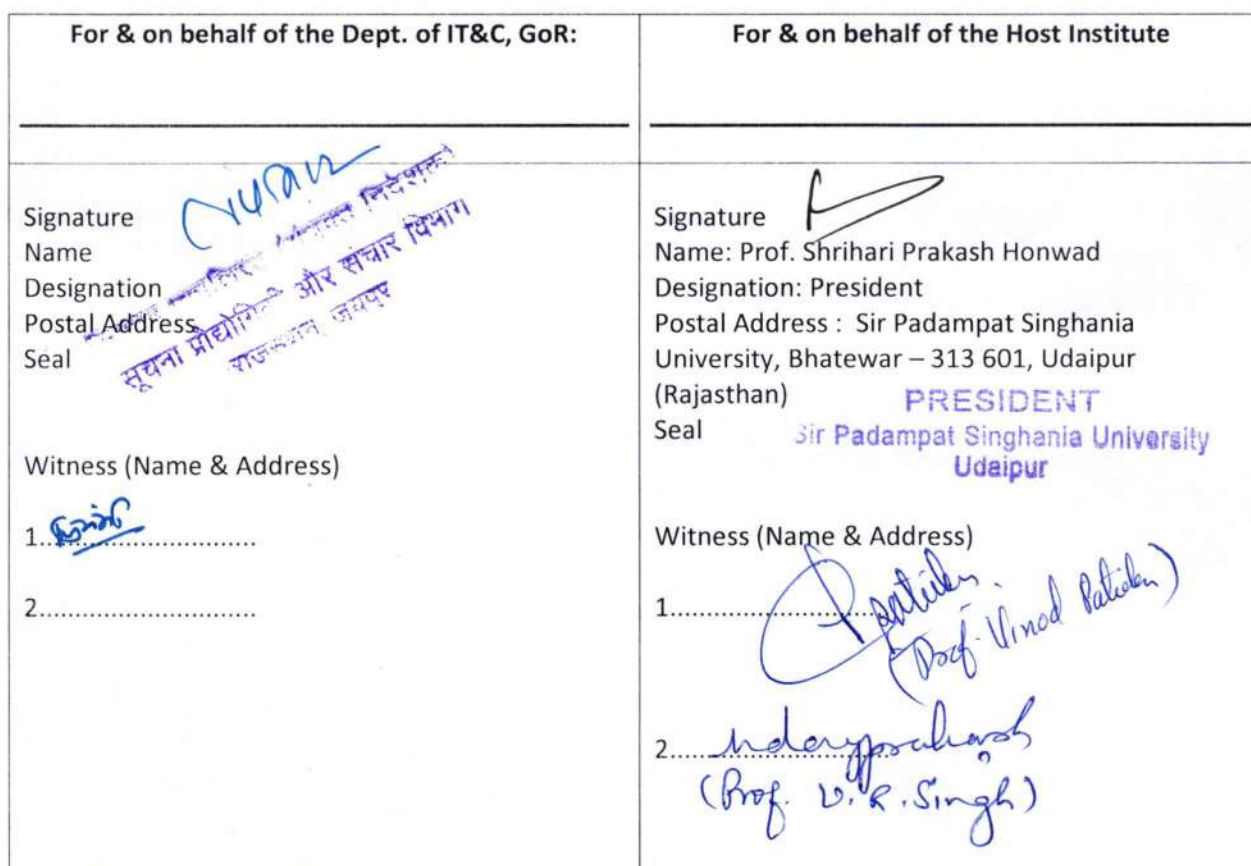 For & on behalf of the Dept. of IT&C, GoR:
Signature
Name
Designation
Postal Address
Seal
सूचना प्रौद्योगिकी और संचार विभाग
राजस्थान, जयपुर
Witness (Name & Address)
1..............................
2..............................
For & on behalf of the Host Institute
Signature
Name: Prof. Shrihari Prakash Honwad
Designation: President
Postal Address : Sir Padampat Singhania
University, Bhatewar – 313 601, Udaipur
(Rajasthan)
Seal
PRESIDENT
Sir Padampat Singhania University
Udaipur
Witness (Name & Address)
1..............................
(Prof. Vinod Patidar)
2..............................
(Prof. U. R. Singh)